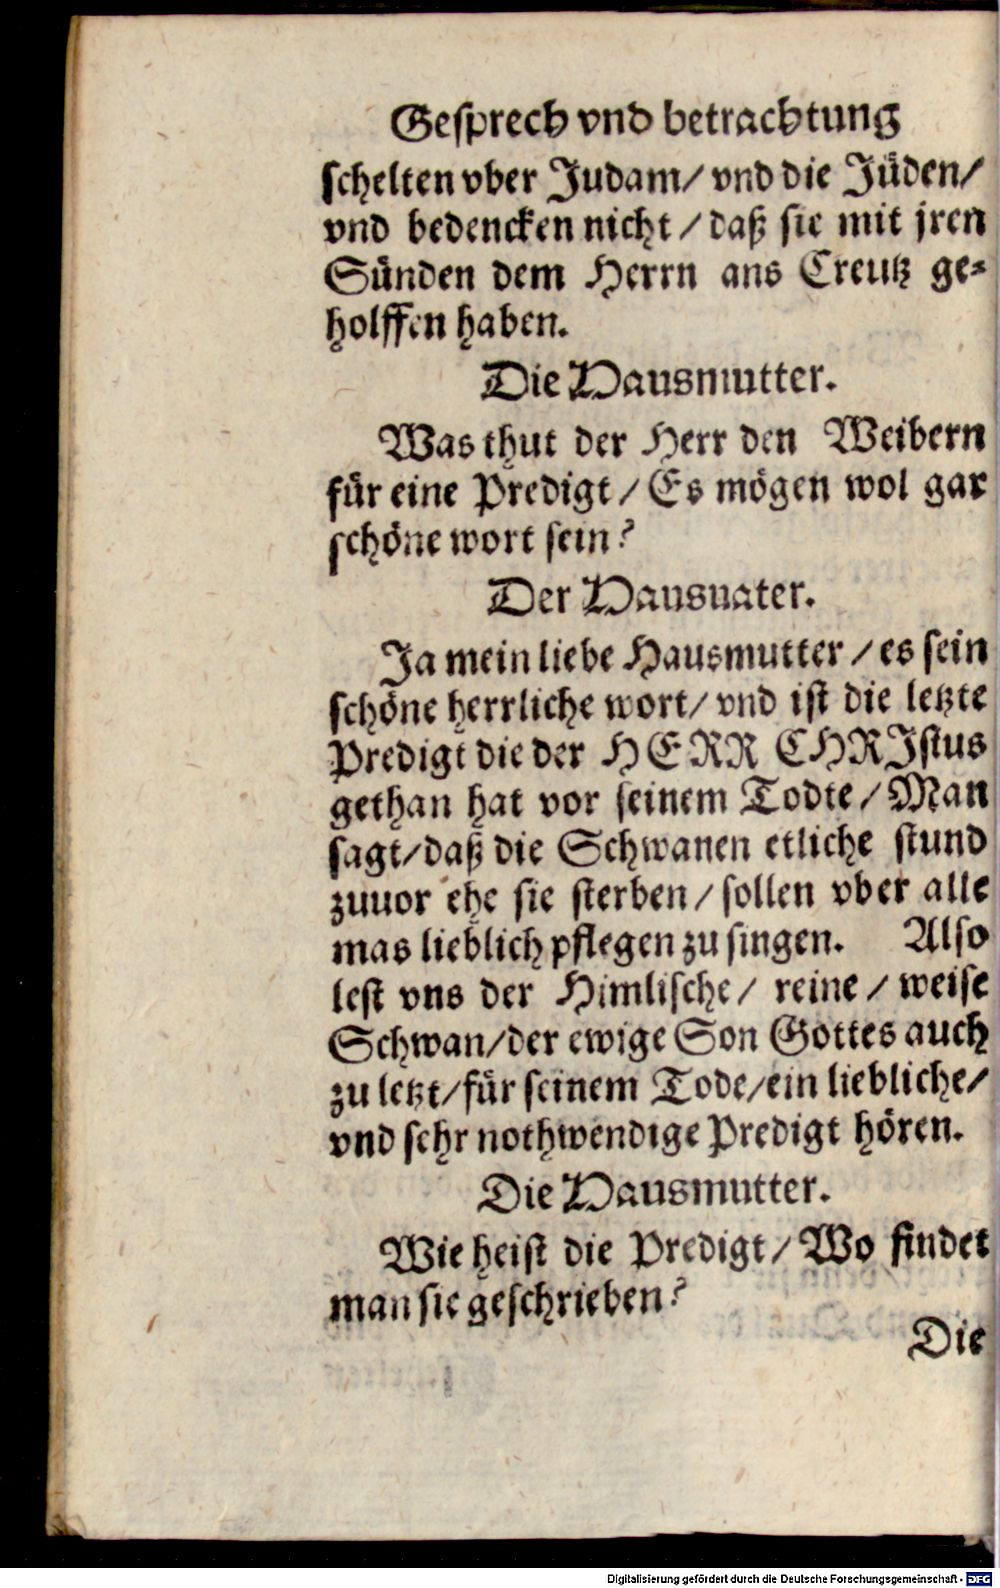 Gesprech vnd betrachtung
schelten vber Judam/ vnd die Jüden/
vnd bedencken nicht / daß sie mit jren
Sünden dem Herrn ans Creutz ge⸗
holffen haben.
Die Hausmutter.
Was thut der Herr den Weibern
für eine Predigt / Es mögen wol gar
schöne wort sein?
Der Hausuater.
Ja mein liebe Hausmutter / es sein
schöne herrliche wort/ vnd ist die letzte
Predigt die der HERR CHRJstus
gethan hat vor seinem Todte / Man
sagt/ daß die Schwanen etliche stund
zuuor ehe sie sterben / sollen vber alle
mas lieblich pflegen zu singen. Also
lest vns der Himlische / reine / weise
Schwan/ der ewige Son Gottes auch
zu letzt/ für seinem Tode/ ein liebliche/
vnd sehr nothwendige Predigt hören.
Die Hausmutter.
Wie heist die Predigt / Wo findet
man sie geschrieben?
Die
Digitalisierung gefördert durch die Deutsche Forschungsgemeinschaft - DFG